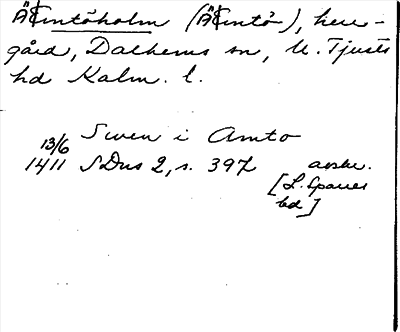 Ämtöholm (Ämtö-), herr-
gård, Dalhems sn, N. Tjusts
hd Kalm. l.
Swen i Amto
13/6
1411 SDns 2, s. 397 avskr.
[L. Sparres
bd]